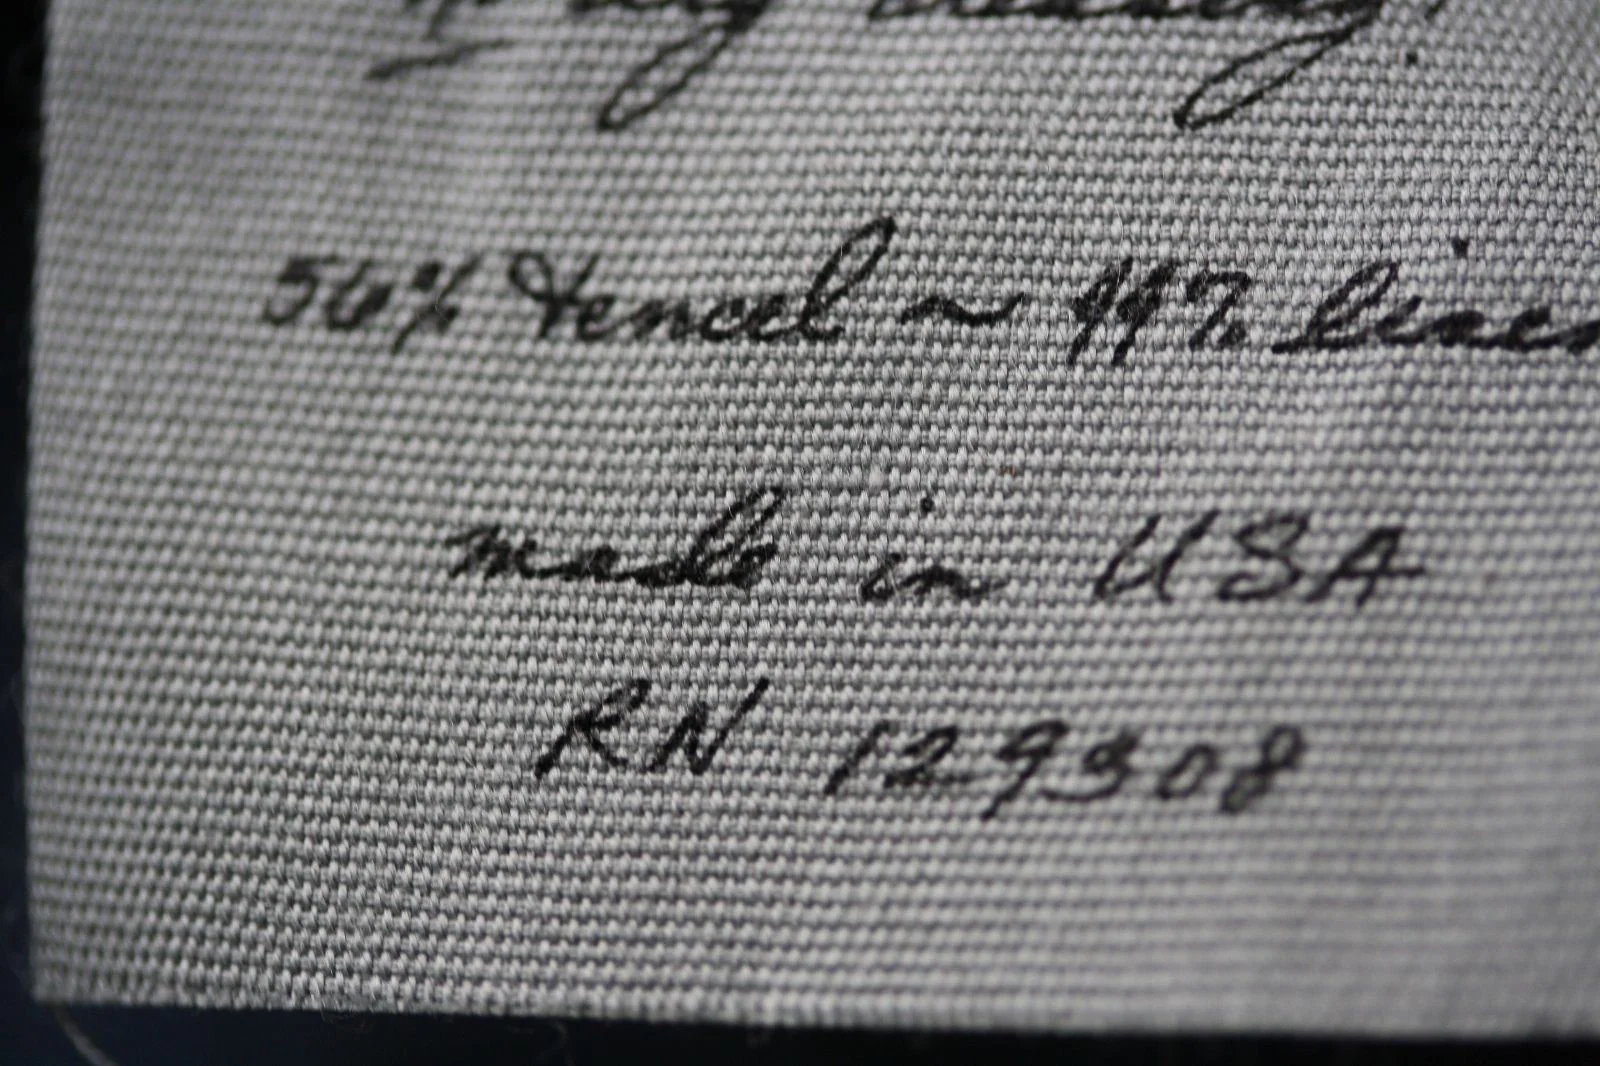 56% tencel ~ 44% linen
made in USA
RN 129308